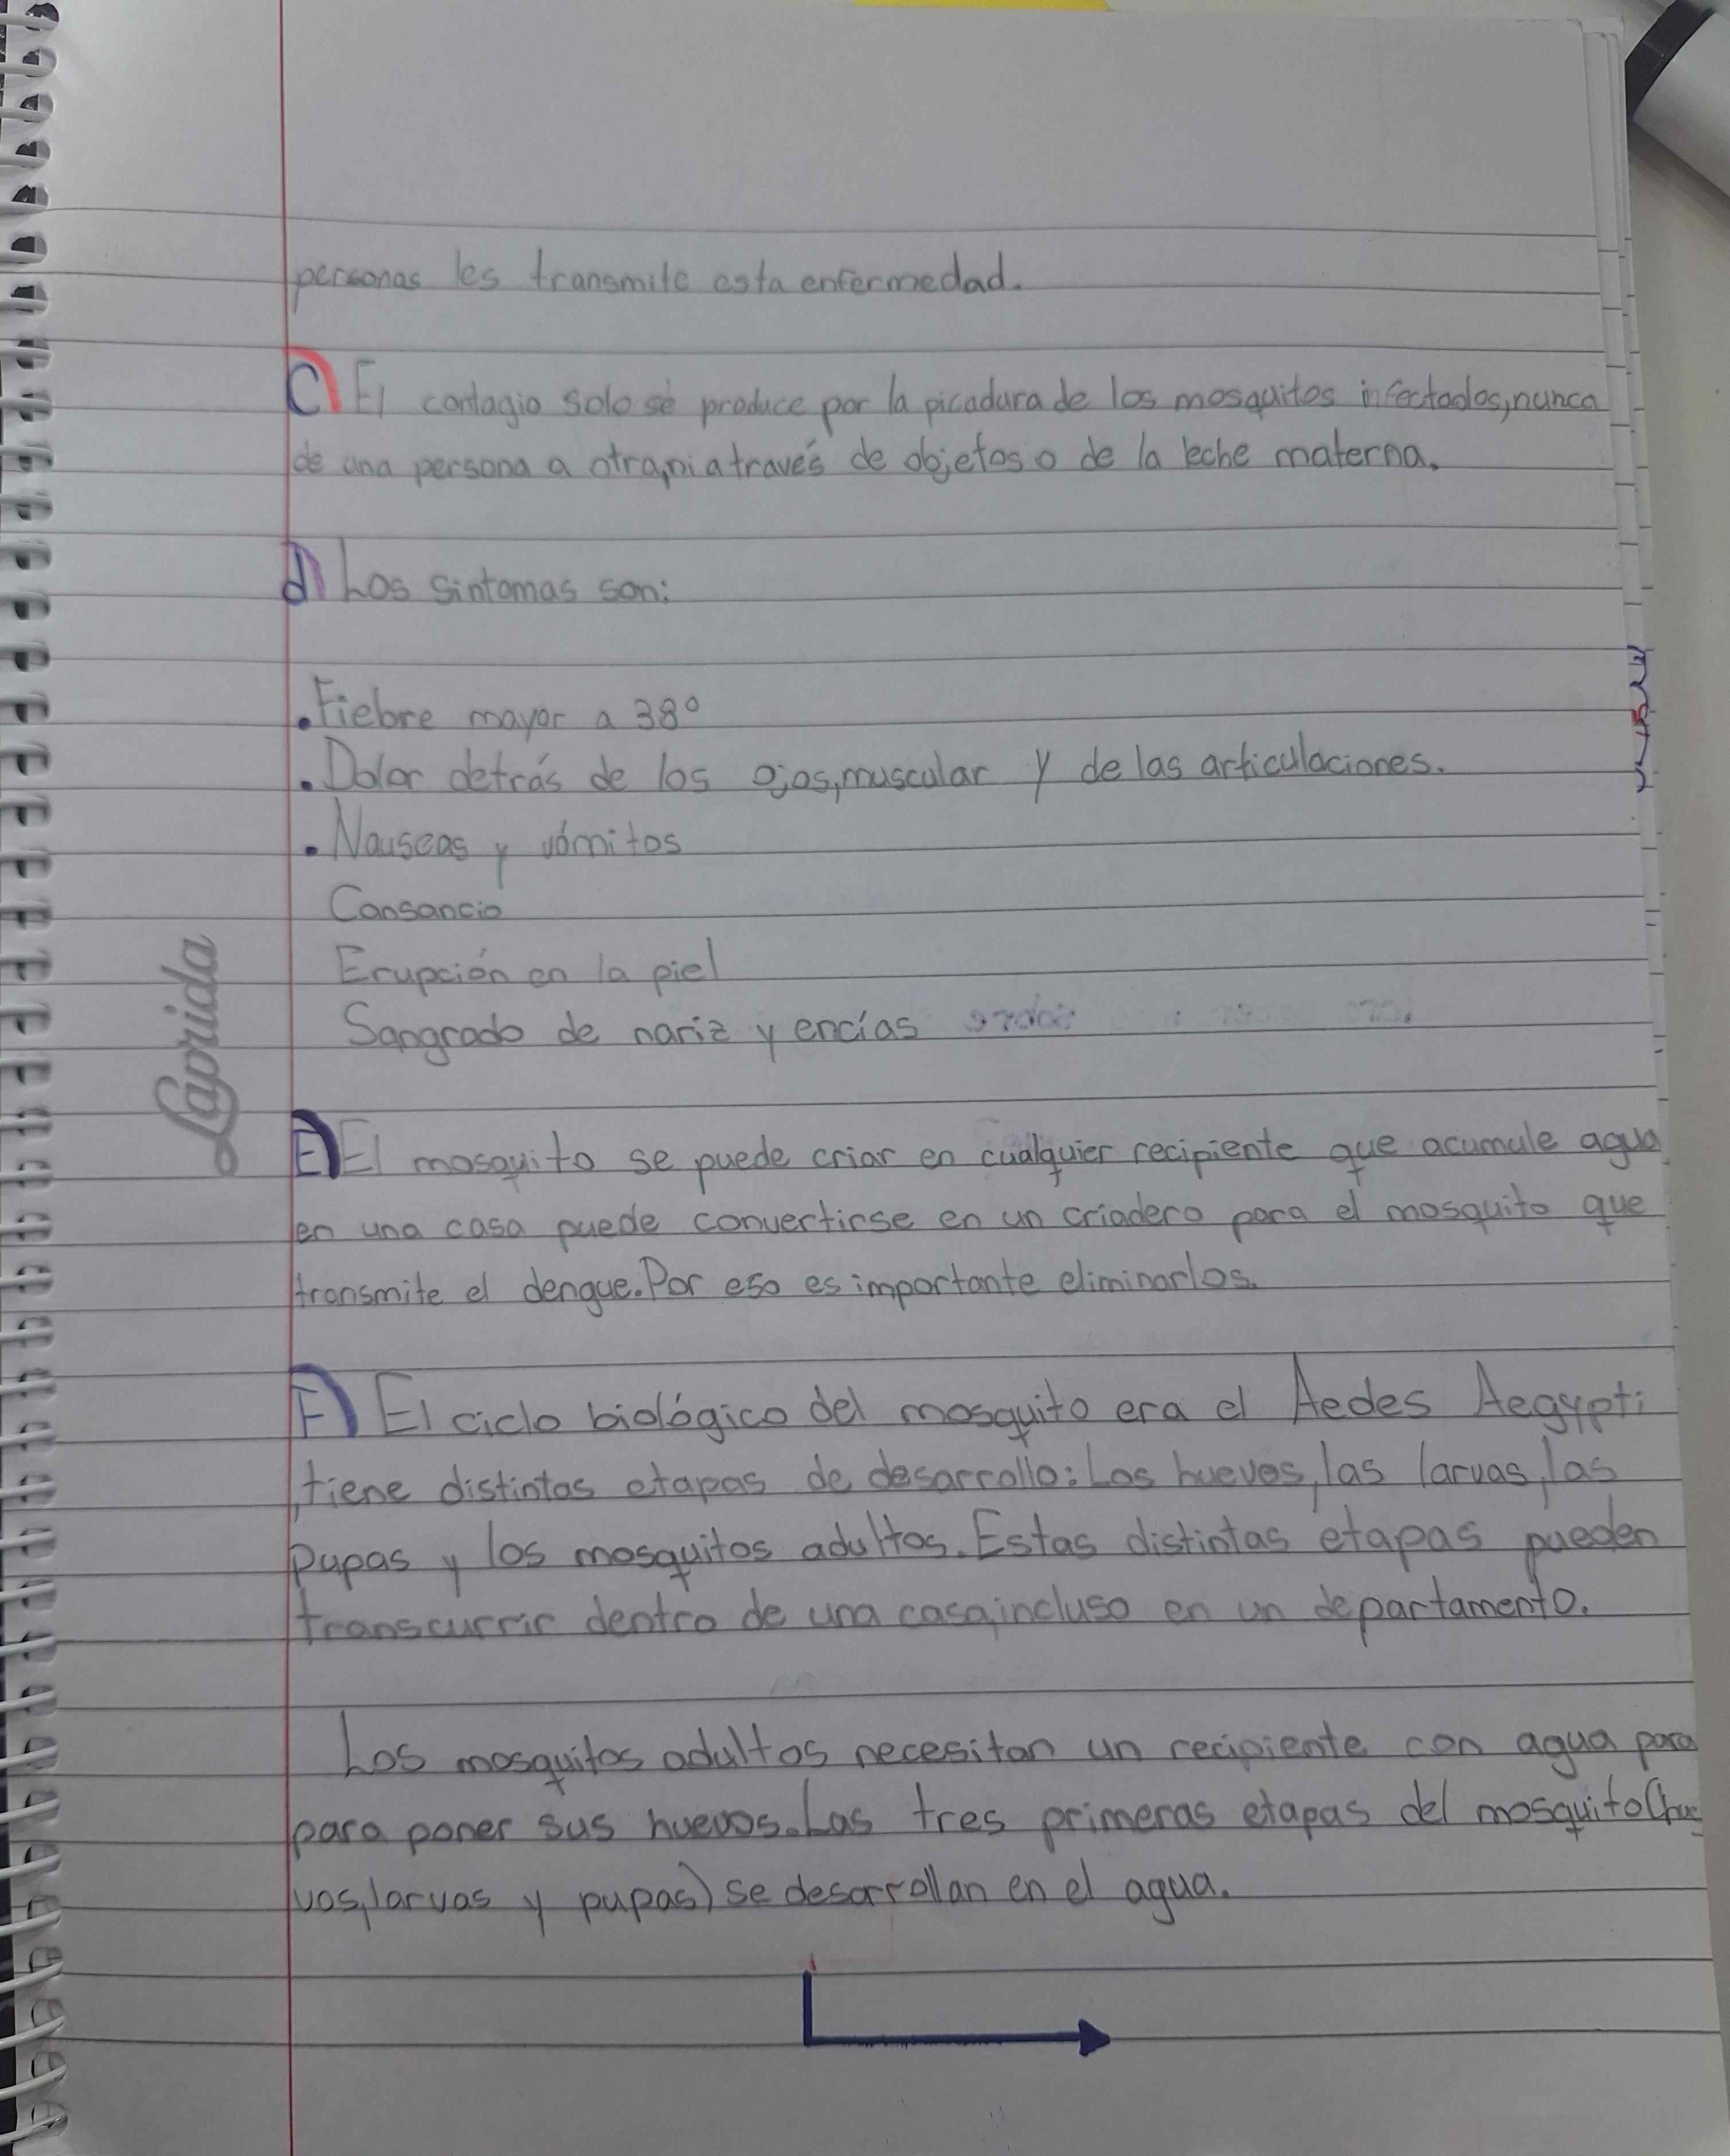 personas les transmite esta enfermedad.
C) El contagio solo se produce por la picadura de los mosquitos infectados, nunca
de una persona a otra, ni a través de objetos o de la leche materna.
d) Los sintomas son:
. Fiebre mayor a 38º
. Dolor detrás de los ojos, muscular y de las articulaciones.
. Nauseas y vómitos
Cansancio
Erupción en la piel
Sangrado de nariz y encías
Laprida
E) El mosquito se puede criar en cualquier recipiente que acumule agua
en una casa puede convertirse en un criadero para el mosquito que
transmite el dengue. Por eso es importante eliminarlos.
F) El ciclo biológico del mosquito era el Aedes Aegypti
, tiene distintas etapas de desarrollo: Los huevos, las larvas, las
pupas y los mosquitos adultos. Estas distintas etapas pueden
transcurrir dentro de una casa, incluso en un departamento.
Los mosquitos adultos necesitan un recipiente con agua para
para poner sus huevos. Las tres primeras etapas del mosquito (hue
vos, larvas y pupas) se desarrollan en el agua.